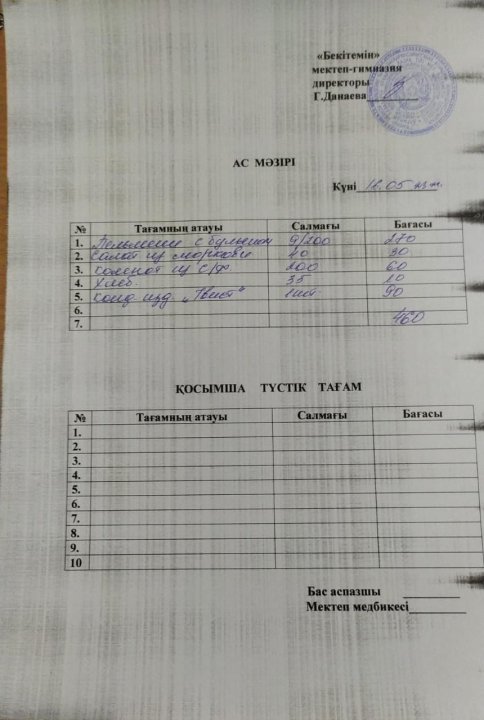 «Бекітемін»
мектеп-гимназия
директоры
Г.Данаева
АС МӘЗІРІ
Күні 12.05
№ Тағамның атауы Салмағы Бағасы
1. Пельмени с бульоном 9/200 270
2. Салат из моркови 40 30
3. компот из с/ф 200 60
4. Хлеб 35 10
5. конд. изд. „Твист" 1шт 90
6.
7. 460
ҚОСЫМША ТҮСТІК ТАҒАМ
№ Тағамның атауы Салмағы Бағасы
1.
2.
3.
4.
5.
6.
7.
8.
9.
10
Бас аспазшы
Мектеп медбикесі